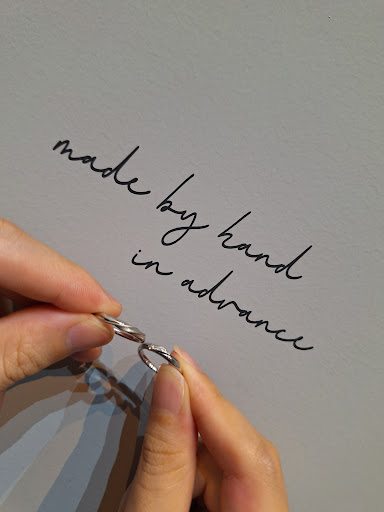 made by hand
in advance